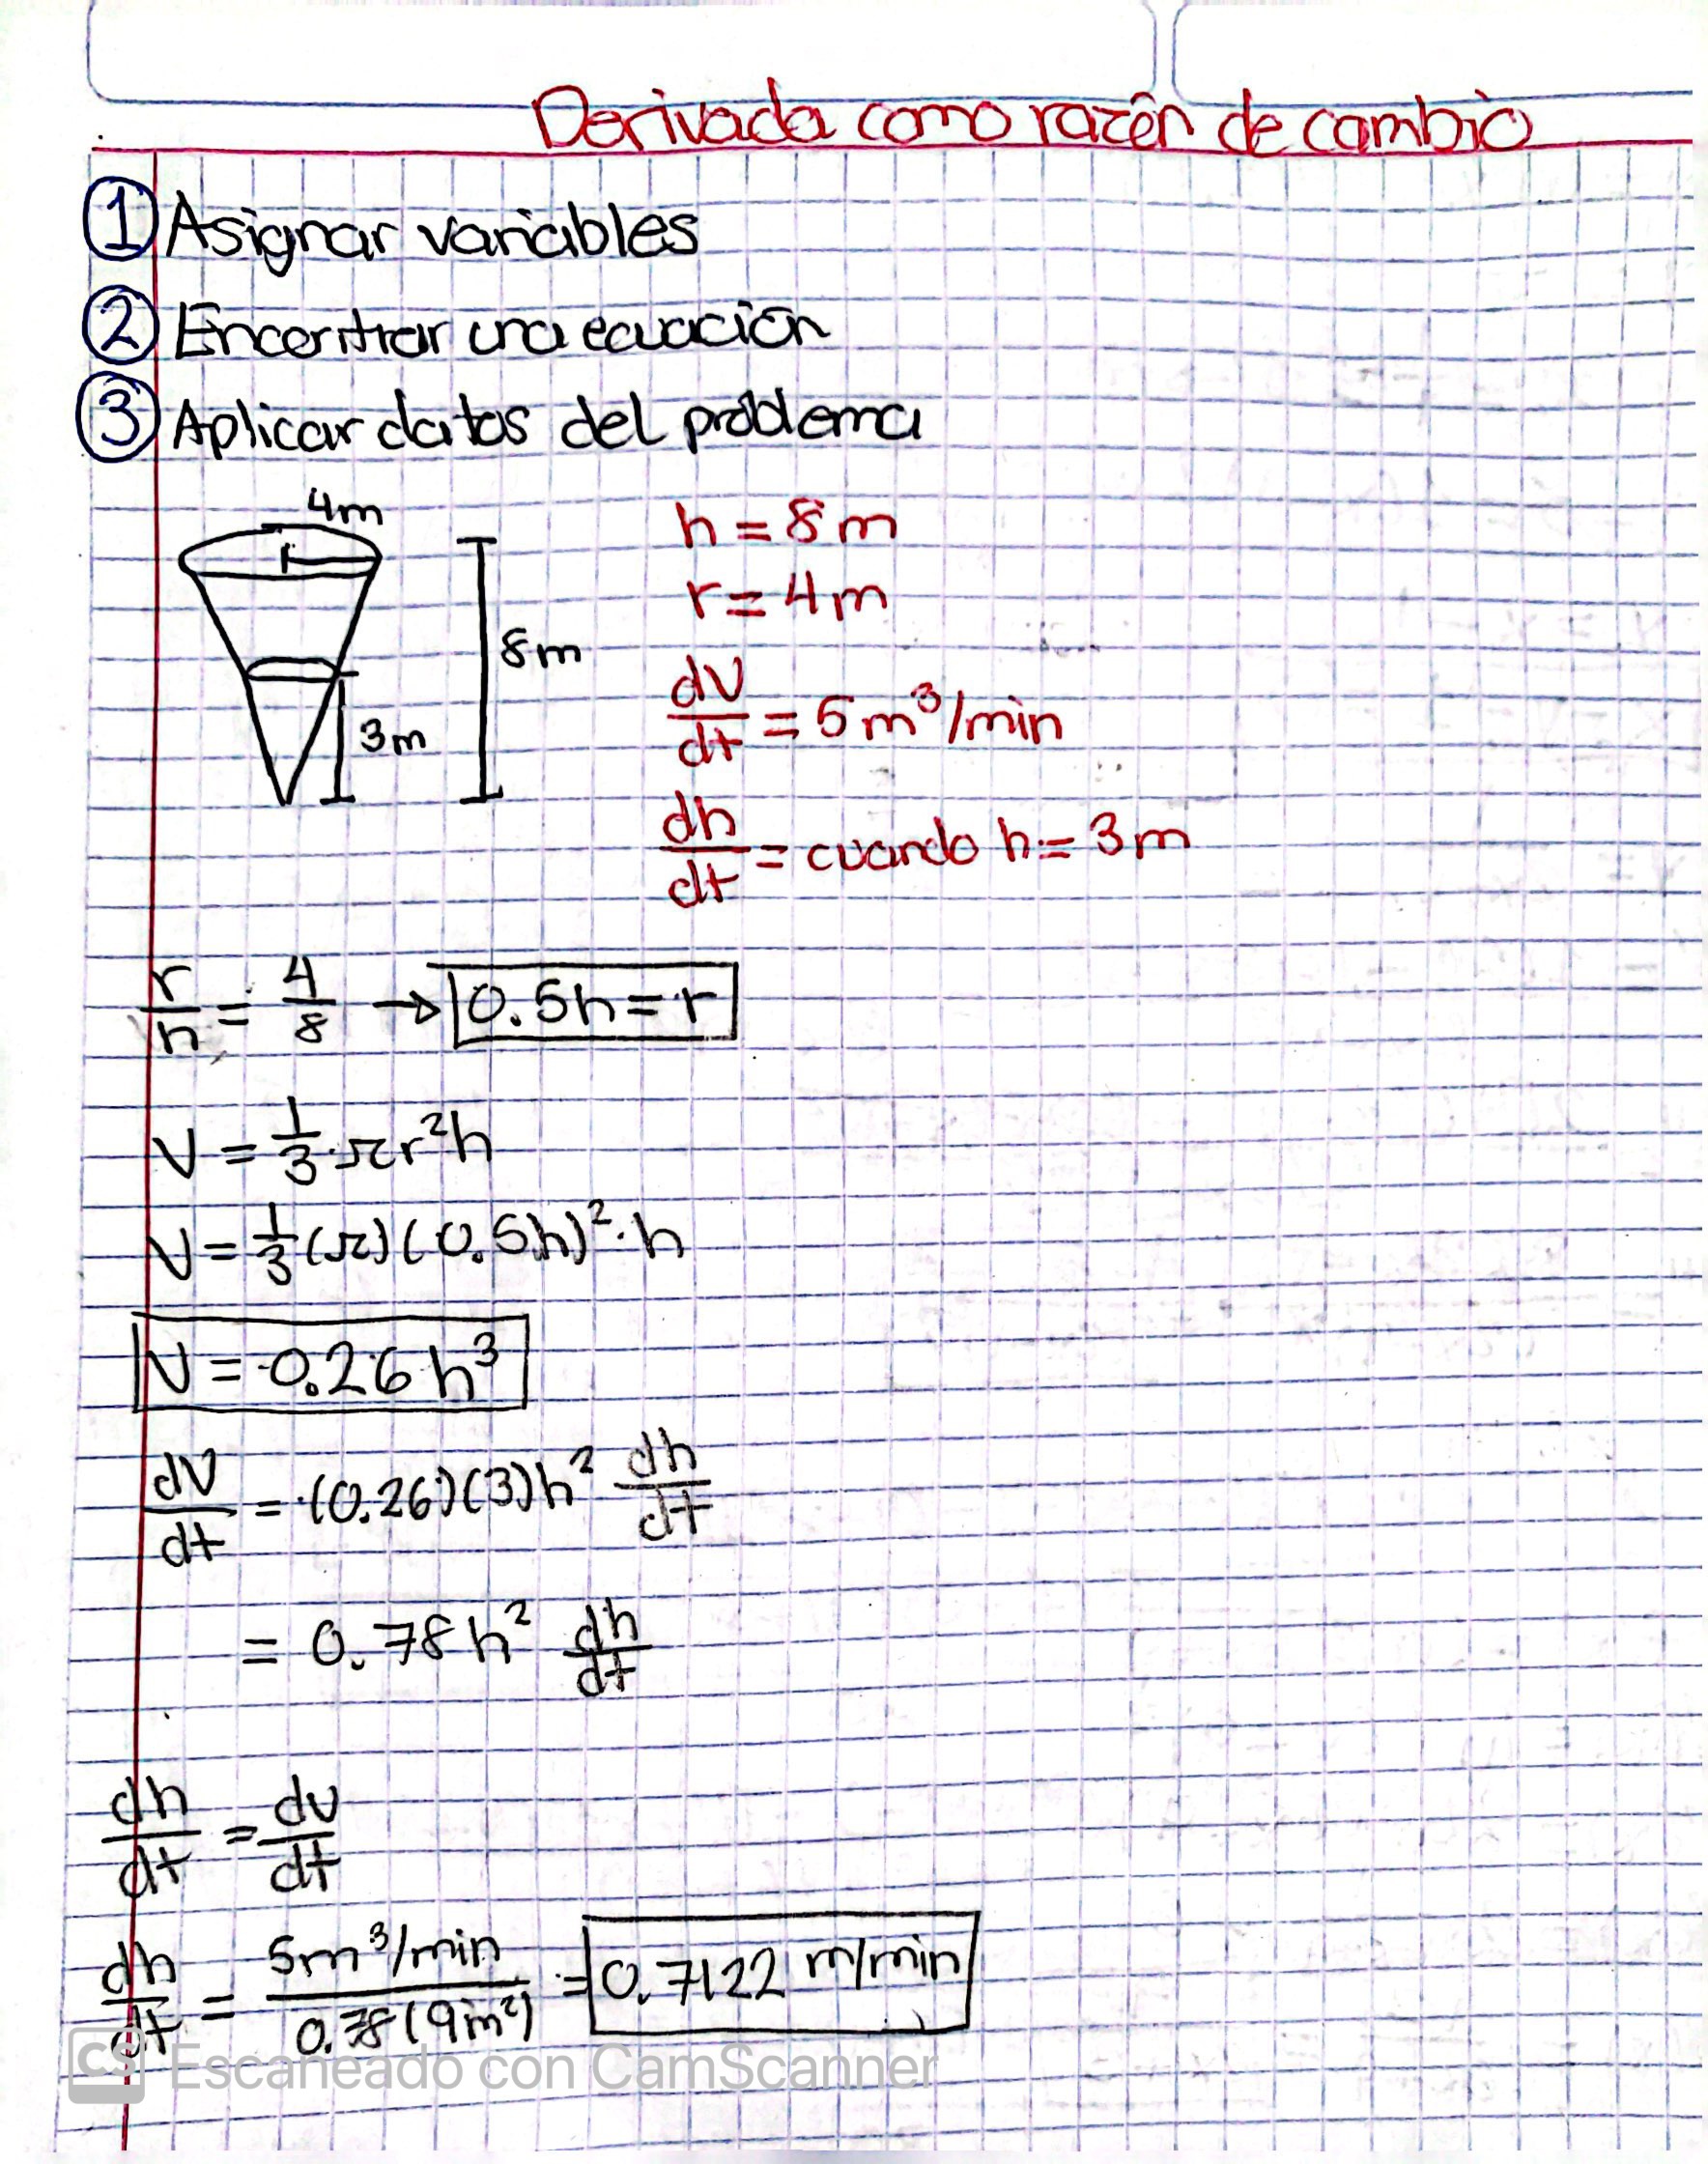 Derivada como razón de cambio
① Asignar variables
② Encontrar una ecuación
③ Aplicar datos del problema
4m
r
8m
3m
h = 8m
r = 4m
dV/dt = 5m³/min
dh/dt = cuando h = 3m
r/h = 4/8 → 0.5h = r
V = 1/3 · πr²h
V = 1/3 (π)(0.5h)² · h
V = 0.26h³
dV/dt = (0.26)(3)h² dh/dt
= 0.78h² dh/dt
dh/dt = dv/dt
dh/dt = 5m³/min / 0.78(9m²) = 0.7122 m/min
CS Escaneado con CamScanner